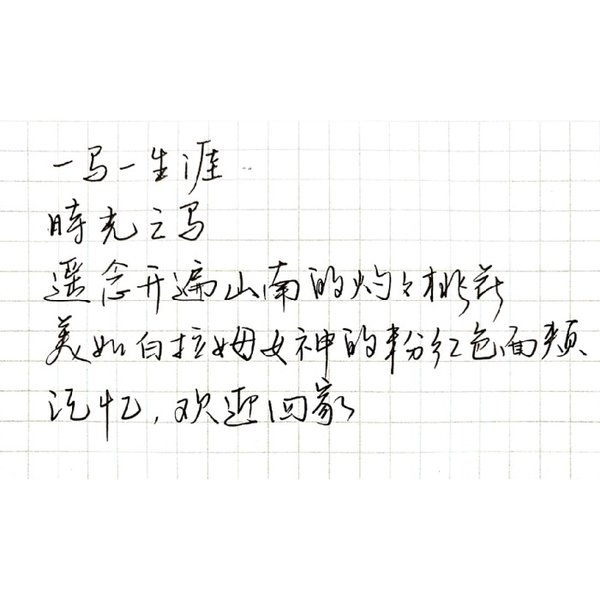 一马一生涯
時光之马
遥念开遍山南的灼々桃花
美如白拉姆女神的粉红色面颊
记忆,欢迎回家